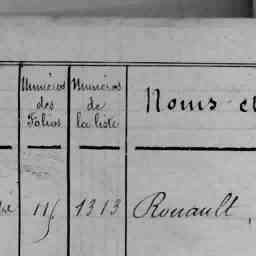 Numéros des Folios
Numéros de la liste
Noms et
115 1313 Rouault,